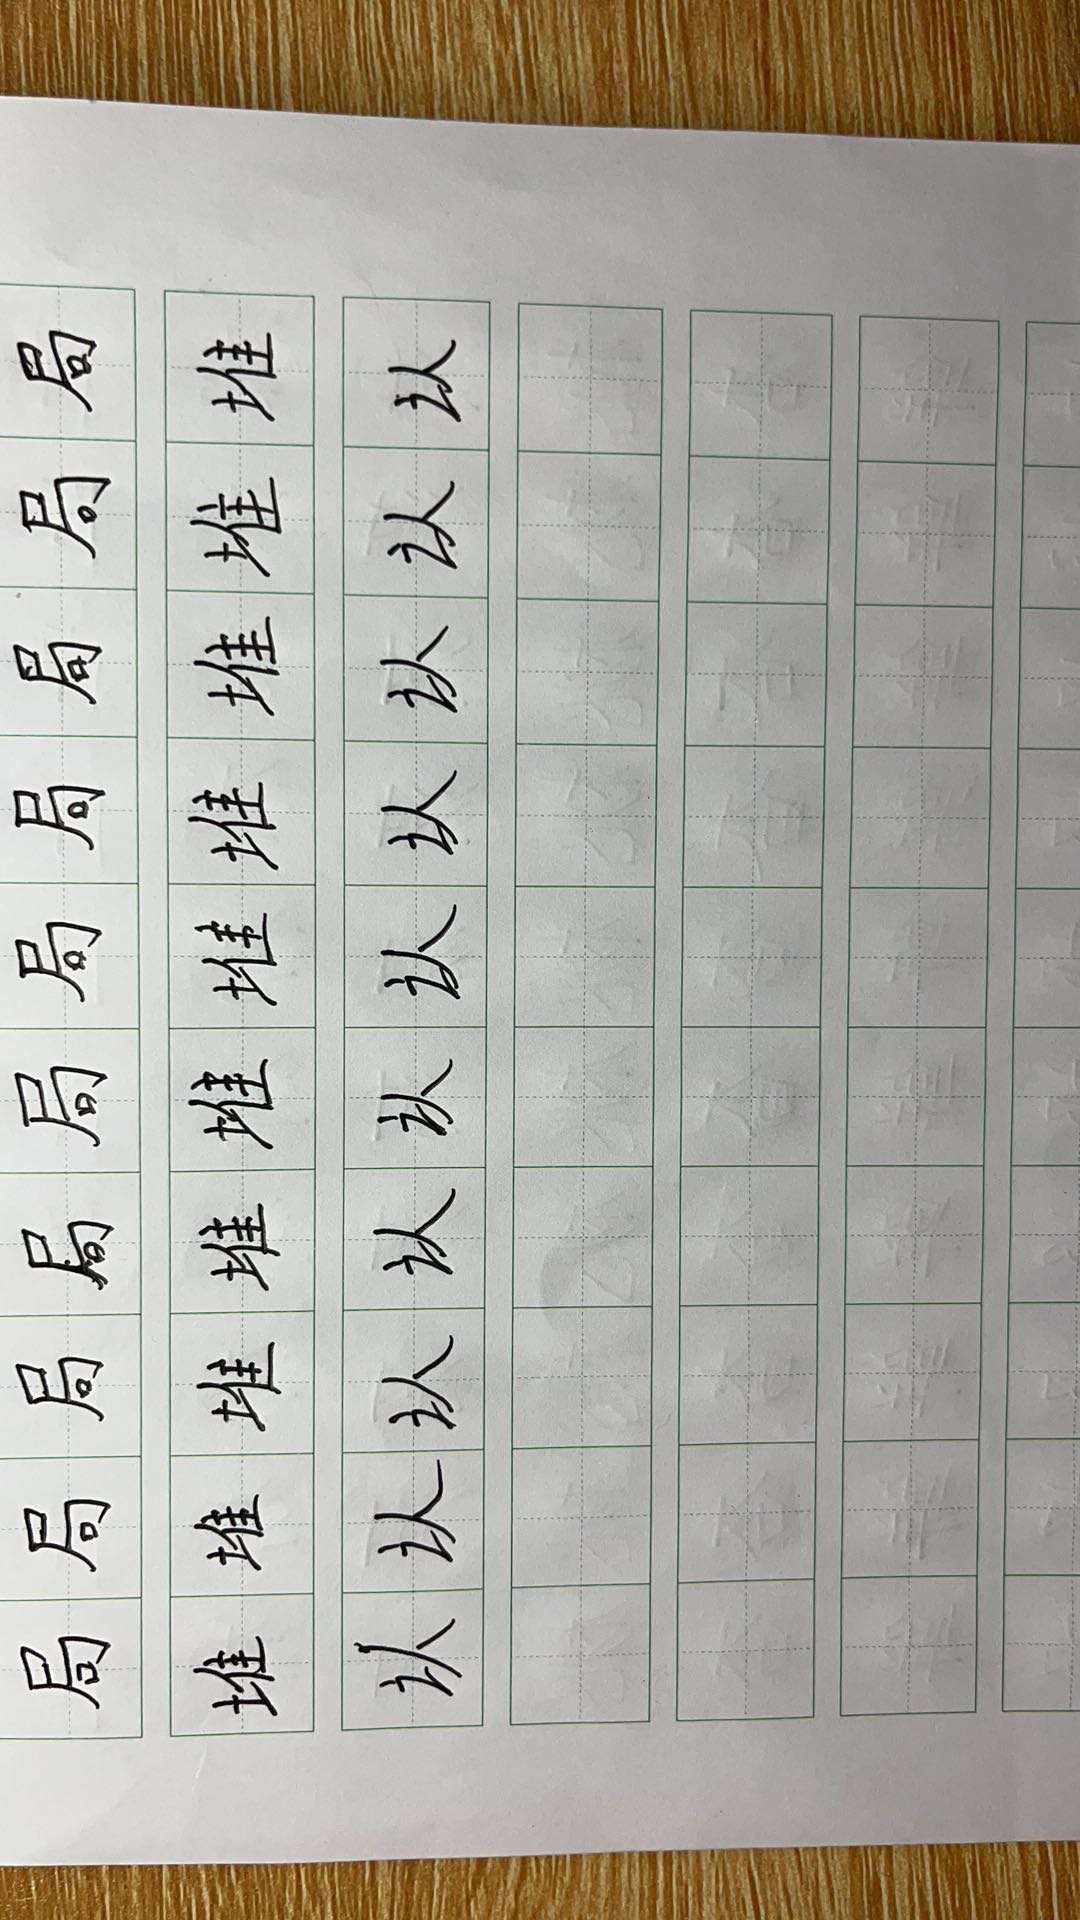 局局局局局局局局局局
堆堆堆堆堆堆堆堆堆堆
认认认认认认认认认认